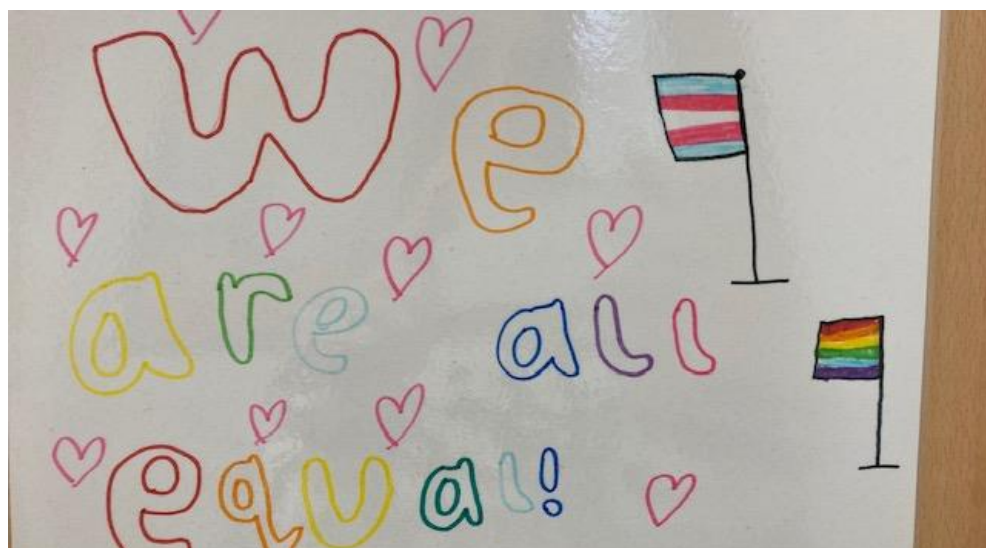 We
are all
equal!